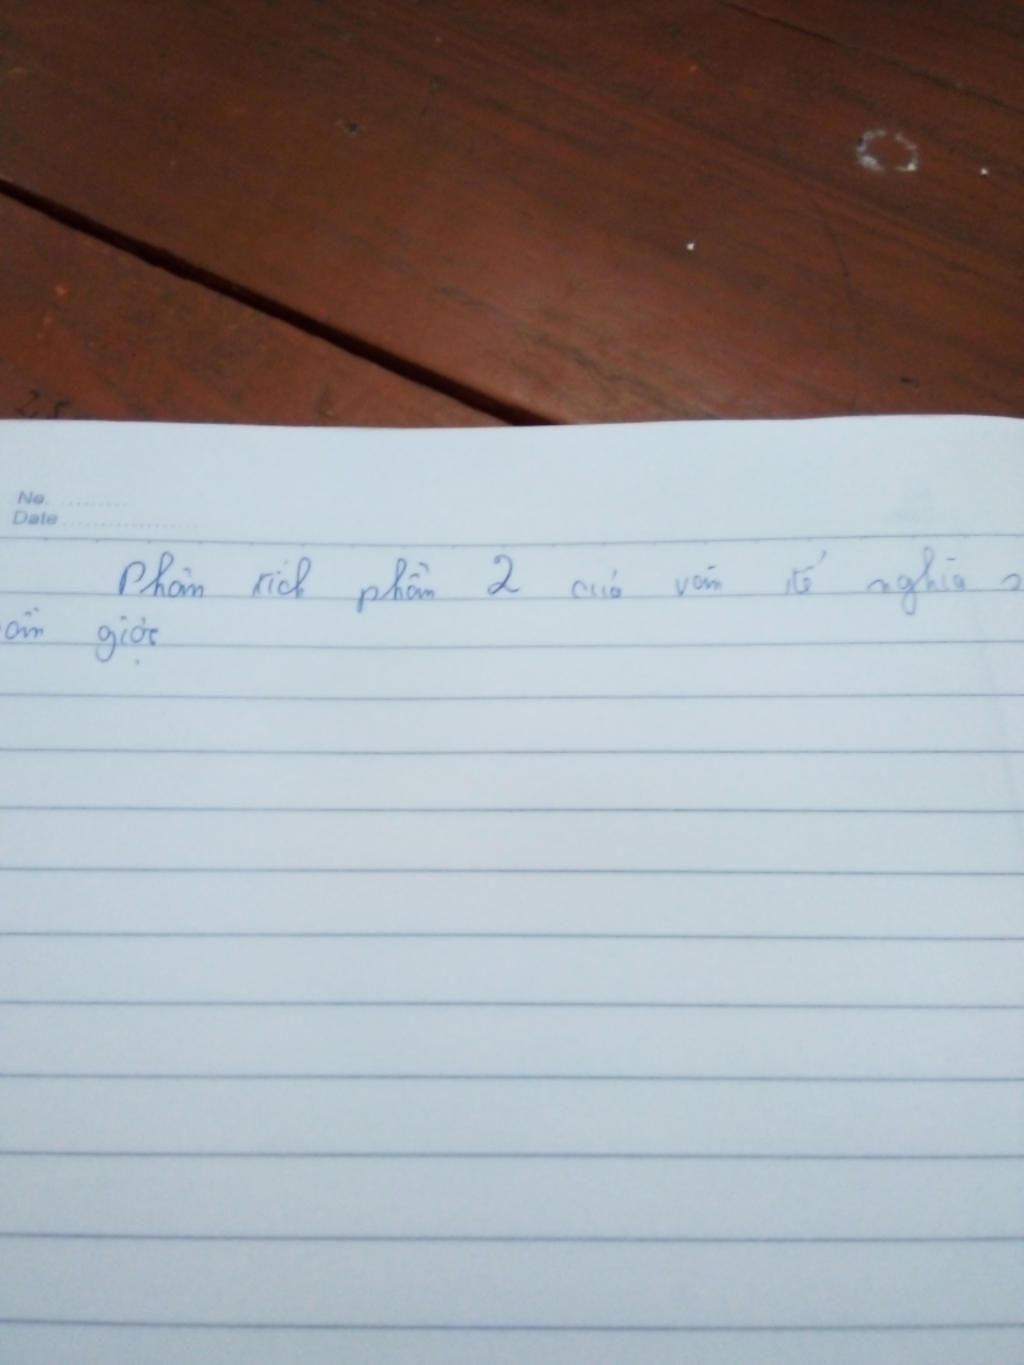 No. ............
Date ........................
Phân tích phần 2 của văn tế nghĩa s
giuộc